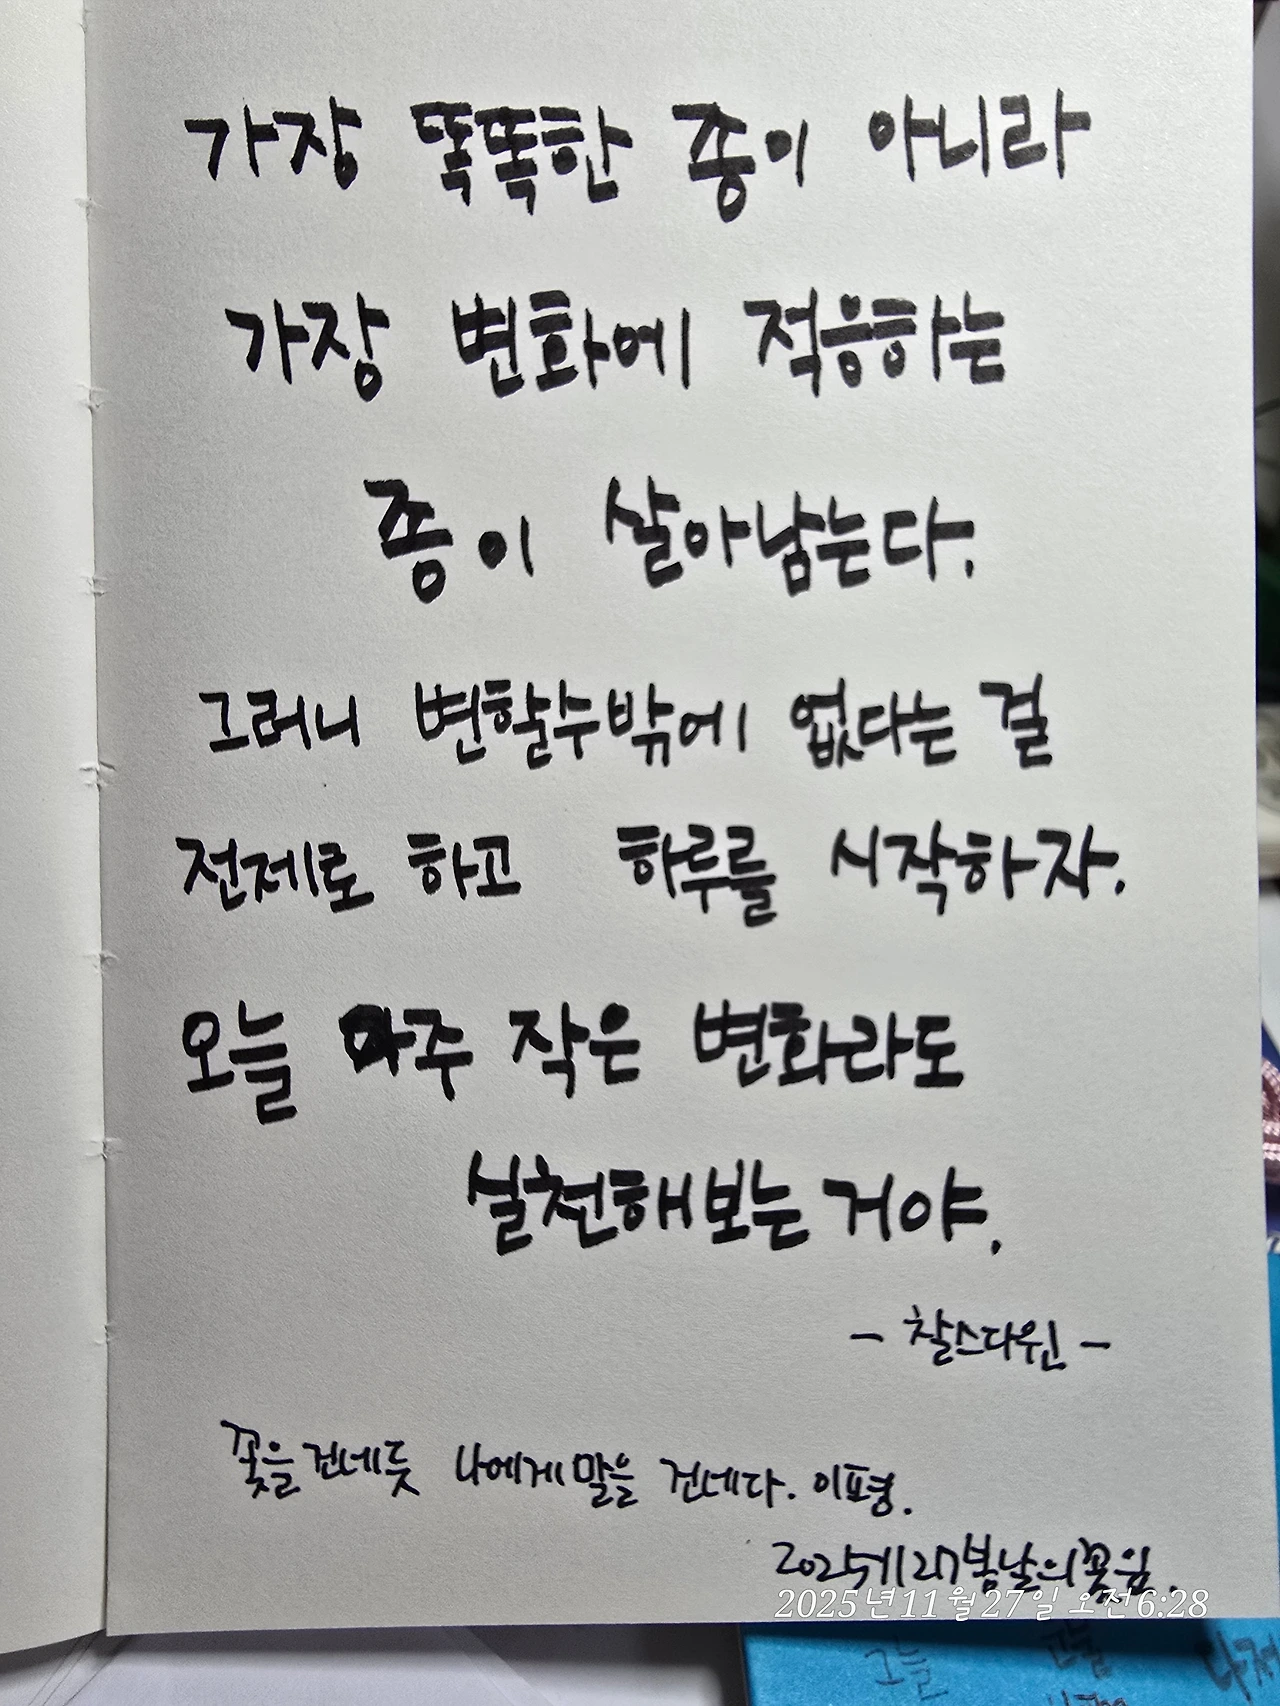 가장 똑똑한 종이 아니라
가장 변화에 적응하는
종이 살아남는다.
그러니 변할수밖에 없다는 걸
전제로 하고 하루를 시작하자.
오늘 아주 작은 변화라도
실천해보는 거야.
- 찰스다윈 -
꽃을 건네듯 나에게 말을 건네다. 이평.
봄날의꽃잎.
2025년11월27일 오전6:28